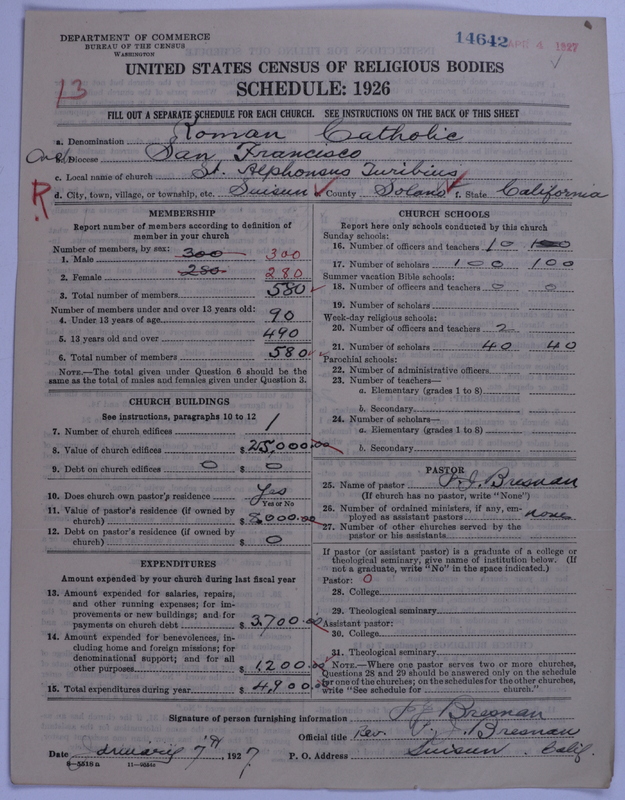 DEPARTMENT OF COMMERCE
BUREAU OF THE CENSUS
WASHINGTON
14642 APR 4 1927
UNITED STATES CENSUS OF RELIGIOUS BODIES
SCHEDULE: 1926
13
FILL OUT A SEPARATE SCHEDULE FOR EACH CHURCH. SEE INSTRUCTIONS ON THE BACK OF THIS SHEET
a. Denomination Roman Catholic
b. Diocese San Francisco
c. Local name of church St. Alphonsus Turibius
R
d. City, town, village, or township, etc. Suisun e. County Solano f. State California
MEMBERSHIP
Report number of members according to definition of
member in your church
Number of members, by sex:
1. Male 300 300
2. Female 280 280
3. Total number of members 580
Number of members under and over 13 years old:
4. Under 13 years of age 90
5. 13 years old and over 490
6. Total number of members 580
NOTE.—The total given under Question 6 should be the
same as the total of males and females given under Question 3.
CHURCH BUILDINGS
See instructions, paragraphs 10 to 12
7. Number of church edifices 1
8. Value of church edifices $ 25,000.00
9. Debt on church edifices 0 $ 0
10. Does church own pastor's residence Yes
Yes or No
11. Value of pastor's residence (if owned by
church) $ 8,000.00
12. Debt on pastor's residence (if owned by
church) $ 0
EXPENDITURES
Amount expended by your church during last fiscal year
13. Amount expended for salaries, repairs,
and other running expenses; for im-
provements or new buildings; and for
payments on church debt $ 3,700.00
14. Amount expended for benevolences, in-
cluding home and foreign missions; for
denominational support; and for all
other purposes $ 1,200.00
15. Total expenditures during year $ 4,900.00
CHURCH SCHOOLS
Report here only schools conducted by this church
Sunday schools:
16. Number of officers and teachers 10
17. Number of scholars 100 100
Summer vacation Bible schools:
18. Number of officers and teachers 0 0
19. Number of scholars
Week-day religious schools:
20. Number of officers and teachers 2
21. Number of scholars 40 40
Parochial schools:
22. Number of administrative officers
23. Number of teachers—
a. Elementary (grades 1 to 8)
b. Secondary
24. Number of scholars—
a. Elementary (grades 1 to 8)
b. Secondary
PASTOR
25. Name of pastor P. J. Bresnan
(If church has no pastor, write "None")
26. Number of ordained ministers, if any, em-
ployed as assistant pastors none
27. Number of other churches served by the
pastor or his assistants
If pastor (or assistant pastor) is a graduate of a college or
theological seminary, give name of institution below. (If
not a graduate, write "No" in the space indicated.)
Pastor: 0
28. College
29. Theological seminary
Assistant pastor:
30. College
31. Theological seminary
NOTE.—Where one pastor serves two or more churches,
Questions 28 and 29 should be answered only on the schedule
for one of the churches; on the schedules for the other churches,
write "See schedule for church."
Signature of person furnishing information P J Bresnan
Official title Rev. P. J. Bresnan
Date January 7th, 1927 P. O. Address Suisun Calif.
8-5518a 11-9684a